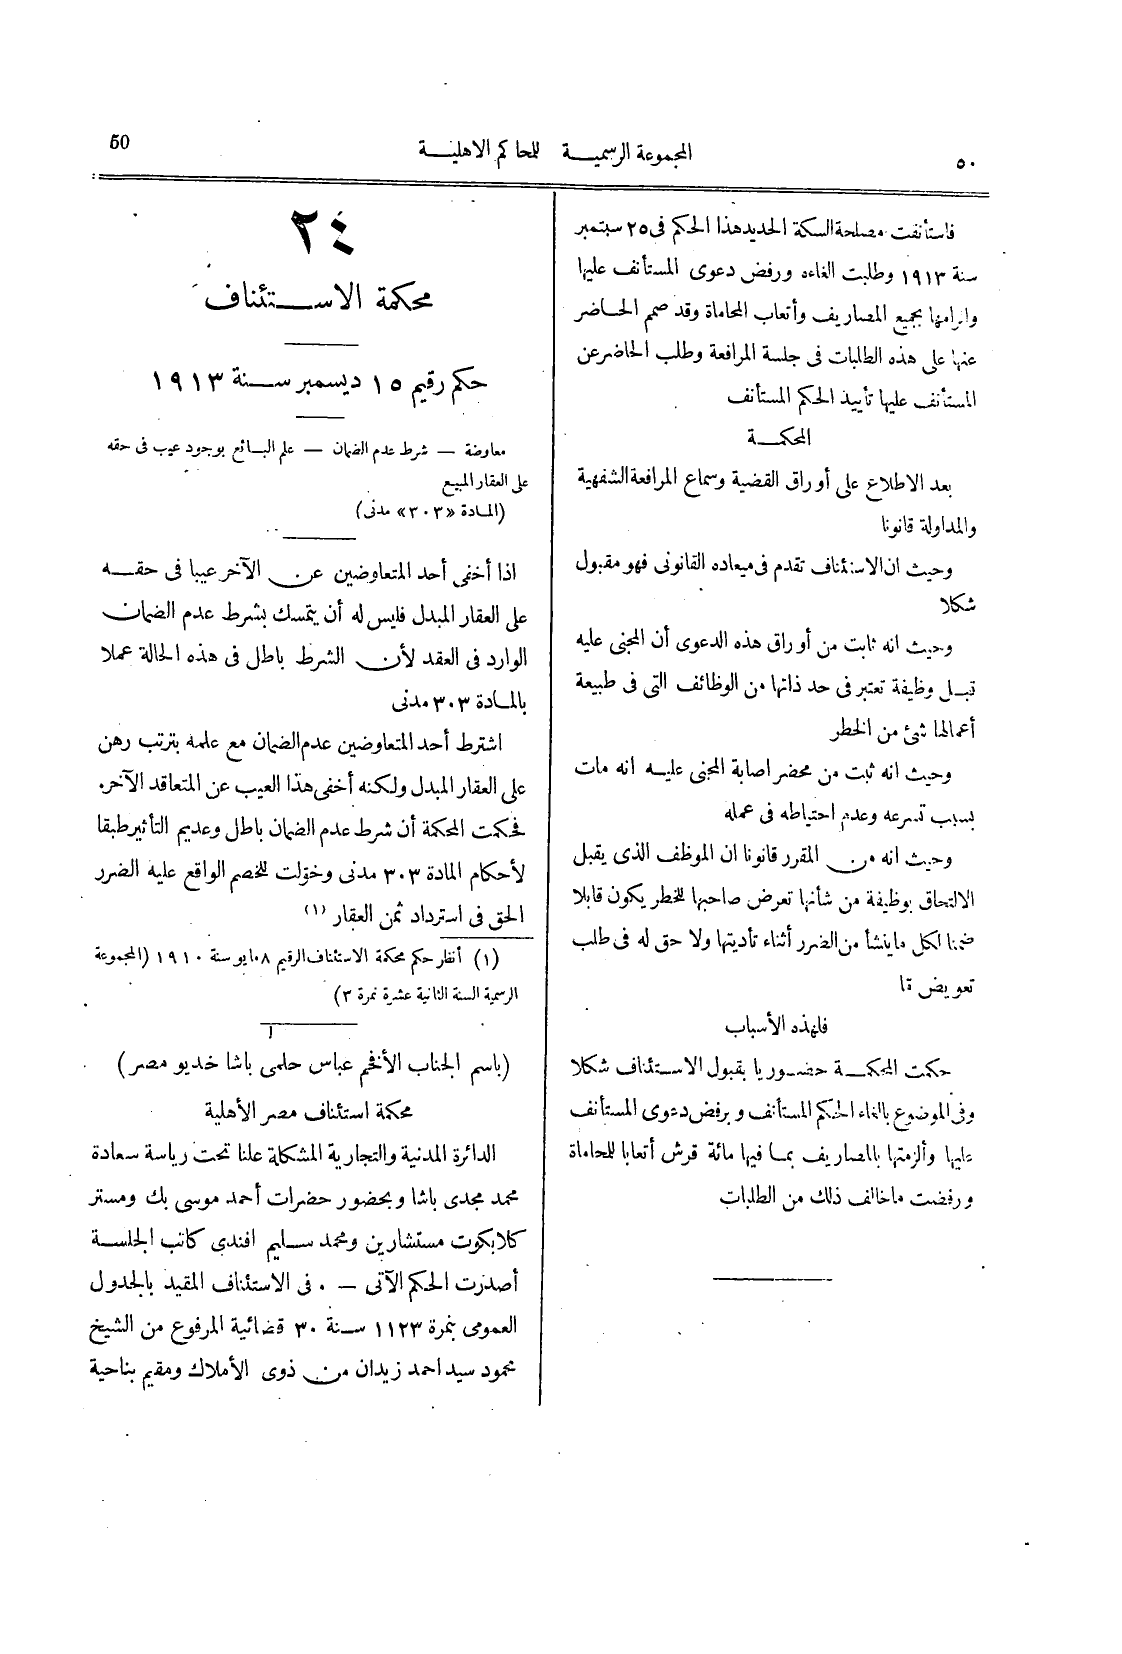 ٥٠
المجموعة الرسمية للمحاكم الاهلية
50
فاستأنفت مصلحة السكة الحديد هذا الحكم فى ٢٥ سبتمبر
سنة ١٩١٣ وطلبت الغاءه ورفض دعوى المستأنف عليها
والزامها بجميع المصاريف وأتعاب المحاماة وقد صمم الحاضر
عنها على هذه الطلبات فى جلسة المرافعة وطلب الحاضر عن
المستأنف عليها تأييد الحكم المستأنف
المحكمة
بعد الاطلاع على أوراق القضية وسماع المرافعة الشفهية
والمداولة قانونا
وحيث ان الاستئناف تقدم فى ميعاده القانونى فهو مقبول
شكلا
وحيث انه ثابت من أوراق هذه الدعوى أن المجنى عليه
قبل وظيفة تعتبر فى حد ذاتها من الوظائف التى فى طبيعة
أعمالها شئ من الخطر
وحيث انه ثبت من محضر اصابة المجنى عليه انه مات
بسبب تسرعه وعدم احتياطه فى عمله
وحيث انه من المقرر قانونا ان الموظف الذى يقبل
الالتحاق بوظيفة من شأنها تعرض صاحبها للخطر يكون قابلا
ضمنا لكل ما ينشأ من الضرر أثناء تأديتها ولا حق له فى طلب
تعويض ما
فلهذه الأسباب
حكمت المحكمة حضوريا بقبول الاستئناف شكلا
وفى الموضوع بالغاء الحكم المستأنف وبرفض دعوى المستأنف
عليها وألزمتها بالمصاريف بما فيها مائة قرش أتعابا للمحاماة
ورفضت ماخالف ذلك من الطلبات
٢٤
محكمة الاستئناف
حكم رقيم ١٥ ديسمبر سنة ١٩١٣
معاوضة — شرط عدم الضمان — علم البائع بوجود عيب فى حقه
على العقار المبيع
(المادة «٣٠٣» مدنى)
اذا أخفى أحد المتعاوضين عن الآخر عيبا فى حقه
على العقار المبدل فليس له أن يتمسك بشرط عدم الضمان
الوارد فى العقد لأن الشرط باطل فى هذه الحالة عملا
بالمادة ٣٠٣ مدنى
اشترط أحد المتعاوضين عدم الضمان مع علمه بترتب رهن
على العقار المبدل ولكنه أخفى هذا العيب عن المتعاقد الآخر.
فحكمت المحكمة أن شرط عدم الضمان باطل وعديم التأثير طبقا
لأحكام المادة ٣٠٣ مدنى وخولت للخصم الواقع عليه الضرر
الحق فى استرداد ثمن العقار (١)
(١) أنظر حكم محكمة الاستئناف الرقيم ١٠٨ مايو سنة ١٩١٠ (المجموعة
الرسمية السنة الثانية عشرة نمرة ٣)
(باسم الجناب الأفخم عباس حلمى باشا خديو مصر)
محكمة استئناف مصر الأهلية
الدائرة المدنية والتجارية المشكلة علنا تحت رياسة سعادة
محمد مجدى باشا وبحضور حضرات أحمد موسى بك ومستر
كلايكوت مستشارين ومحمد سليم افندى كاتب الجلسة
أصدرت الحكم الآتى — . فى الاستئناف المقيد بالجدول
العمومى بنمرة ١١٢٣ سنة ٣٠ قضائية المرفوع من الشيخ
محمود سيد احمد زيدان من ذوى الأملاك ومقيم بناحية